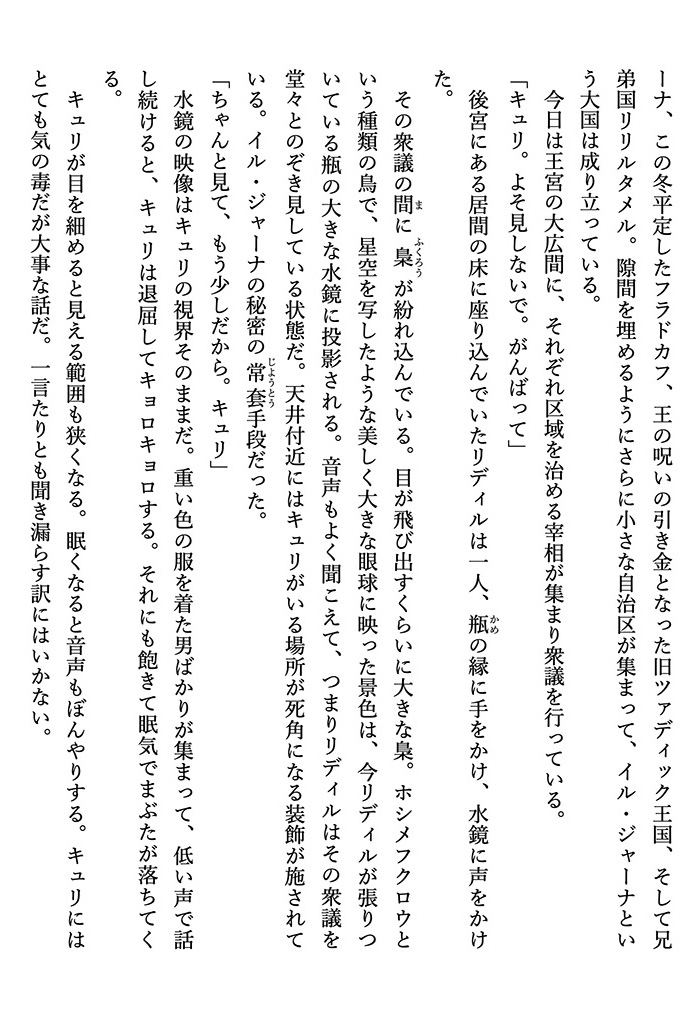 ーナ、この冬平定したフラドカフ、王の呪いの引き金となった旧ツァディック王国、そして兄
弟国リリルタメル。隙間を埋めるようにさらに小さな自治区が集まって、イル・ジャーナとい
う大国は成り立っている。
　今日は王宮の大広間に、それぞれ区域を治める宰相が集まり衆議を行っている。
「キュリ。よそ見しないで。がんばって」
　後宮にある居間の床に座り込んでいたリディルは一人、瓶の縁に手をかけ、水鏡に声をかけ
た。
　その衆議の間に梟が紛れ込んでいる。目が飛び出すくらいに大きな梟。ホシメフクロウと
いう種類の鳥で、星空を写したような美しく大きな眼球に映った景色は、今リディルが張りつ
いている瓶の大きな水鏡に投影される。音声もよく聞こえて、つまりリディルはその衆議を
堂々とのぞき見している状態だ。天井付近にはキュリがいる場所が死角になる装飾が施されて
いる。イル・ジャーナの秘密の常套手段だった。
「ちゃんと見て、もう少しだから。キュリ」
　水鏡の映像はキュリの視界そのままだ。重い色の服を着た男ばかりが集まって、低い声で話
し続けると、キュリは退屈してキョロキョロする。それにも飽きて眠気でまぶたが落ちてく
る。
　キュリが目を細めると見える範囲も狭くなる。眠くなると音声もぼんやりする。キュリには
とても気の毒だが大事な話だ。一言たりとも聞き漏らす訳にはいかない。